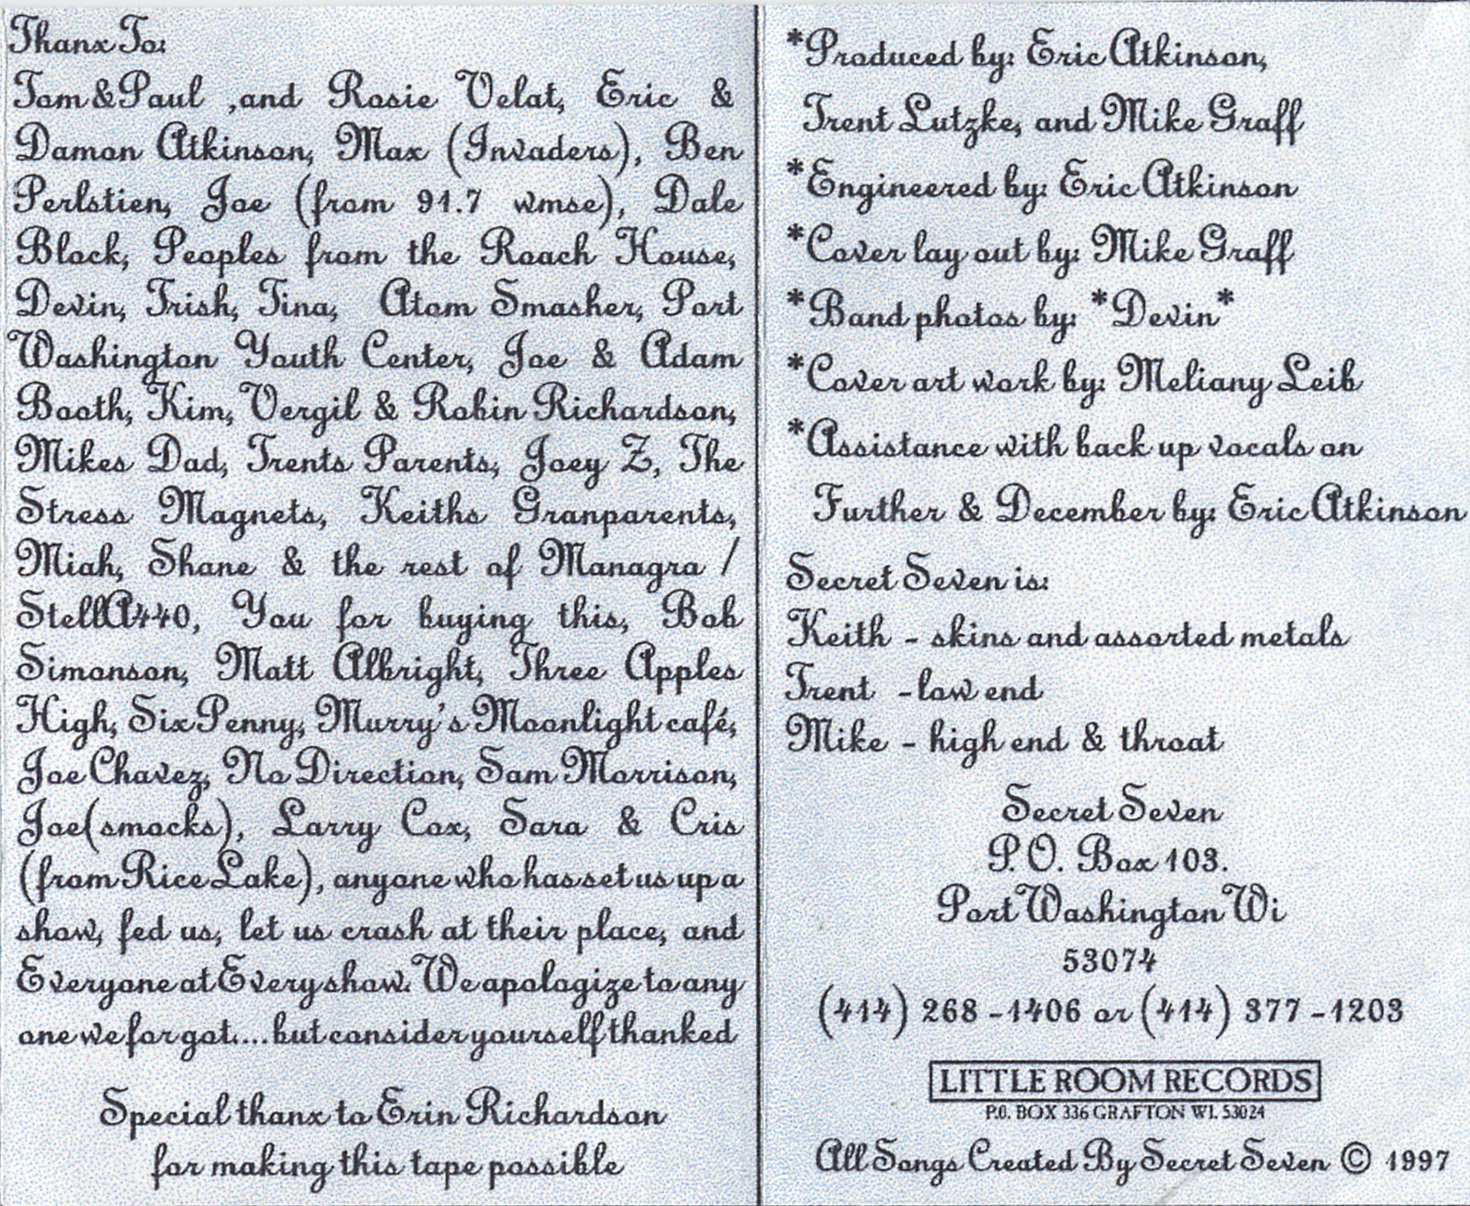 Thanx To:
Tom & Paul ,and Rosie Velat, Eric &
Damon Atkinson, Max (Invaders), Ben
Perlstien, Joe (from 91.7 wmse), Dale
Block, Peoples from the Roach House,
Devin, Trish, Tina, Atom Smasher, Port
Washington Youth Center, Joe & Adam
Booth, Kim, Vergil & Robin Richardson,
Mikes Dad, Trents Parents, Joey Z, The
Stress Magnets, Keiths Granparents,
Miah, Shane & the rest of Managra /
StellA440, You for buying this, Bob
Simonson, Matt Albright, Three Apples
High, Six Penny, Murry's Moonlight café,
Joe Chavez, No Direction, Sam Morrison,
Joe(smocks), Larry Cox, Sara & Cris
(from Rice Lake), anyone who has set us up a
show, fed us, let us crash at their place, and
Everyone at Every show. We apologize to any
one we for got.... but consider yourself thanked
Special thanx to Erin Richardson
for making this tape possible
*Produced by: Eric Atkinson,
Trent Lutzke, and Mike Graff
*Engineered by: Eric Atkinson
*Cover lay out by: Mike Graff
*Band photos by: *Devin*
*Cover art work by: Meliany Leib
*Assistance with back up vocals on
Further & December by: Eric Atkinson
Secret Seven is:
Keith - skins and assorted metals
Trent - low end
Mike - high end & throat
Secret Seven
P.O. Box 103.
Port Washington Wi
53074
(414) 268-1406 or (414) 377-1203
LITTLE ROOM RECORDS
P.O. BOX 336 GRAFTON WI. 53024
All Songs Created By Secret Seven © 1997